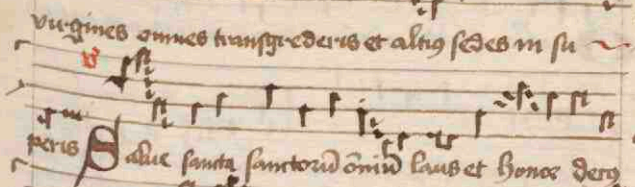 virgines omnes transgrederis et altiꝰ sedes in su
℣
peris Salue sancta sanctorū om̄iū laus et honor decꝰ